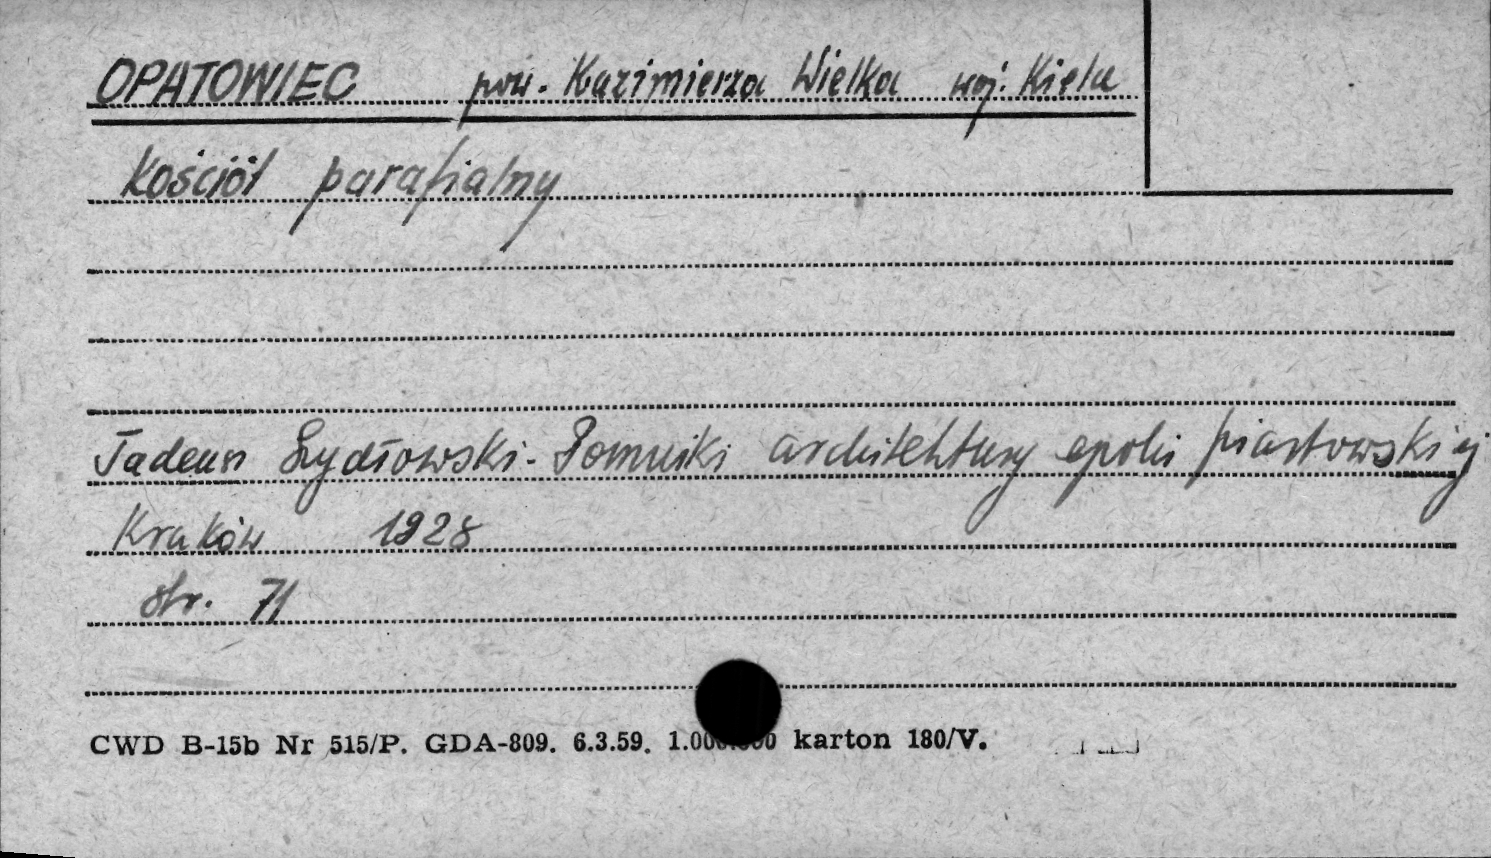 OPATOWIEC pow. Kazimierza Wielka woj. Kielce
Kościół parafialny
Tadeusz Szydłowski - Pomniki architektury epoki piastowskiej
Kraków 1928
str. 71
CWD B-15b Nr 515/P. GDA-809. 6.3.59. 1.000.000 karton 180/V.